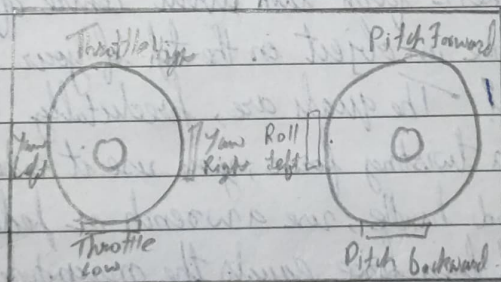 Throttle High
Pitch Forward
Yaw
Left
Yaw
Right
Roll
Left
Throttle
Low
Pitch backward